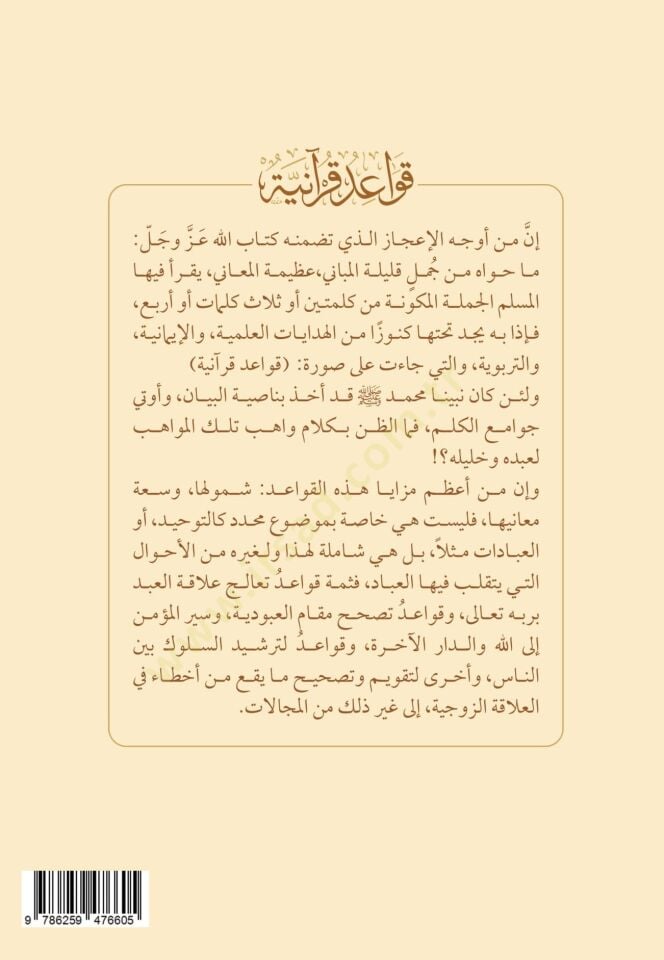 قَوَاعِدُ قُرْآنِيَّةٌ
إنَّ من أوجه الإعجاز الذي تضمنه كتاب الله عَزَّ وجَلّ:
ما حواه من جُملٍ قليلة المباني،عظيمة المعاني، يقرأ فيها
المسلم الجملة المكونة من كلمتين أو ثلاث كلمات أو أربع،
فإذا به يجد تحتها كنوزًا من الهدايات العلمية، والإيمانية،
والتربوية، والتي جاءت على صورة: (قواعد قرآنية)
ولئن كان نبينا محمد ﷺ قد أخذ بناصية البيان، وأوتي
جوامع الكلم، فما الظن بكلام واهب تلك المواهب
لعبده وخليله؟!
وإن من أعظم مزايا هذه القواعد: شمولها، وسعة
معانيها، فليست هي خاصة بموضوع محدد كالتوحيد، أو
العبادات مثلاً، بل هي شاملة لهذا ولغيره من الأحوال
التي يتقلب فيها العباد، فثمة قواعدُ تعالج علاقة العبد
بربه تعالى، وقواعدُ تصحح مقام العبودية، وسير المؤمن
إلى الله والدار الآخرة، وقواعدُ لترشيد السلوك بين
الناس، وأخرى لتقويم وتصحيح ما يقع من أخطاء في
العلاقة الزوجية، إلى غير ذلك من المجالات.
9 786259 476605